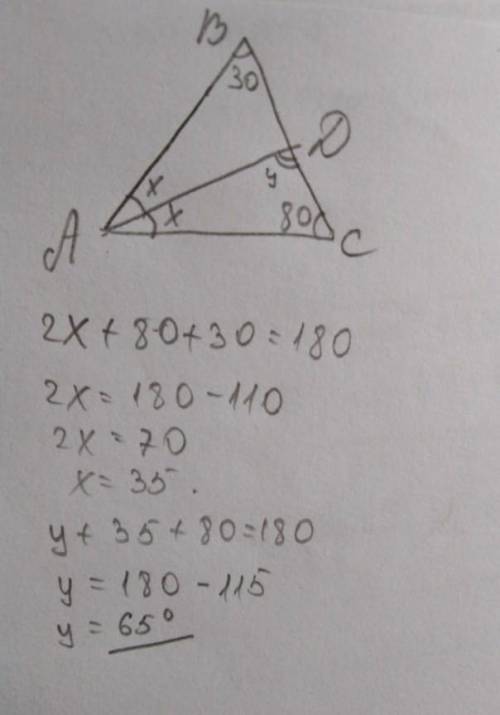 B
30
D
y
x
x
80
A
C
2x + 80 + 30 = 180
2x = 180 - 110
2x = 70
x = 35.
y + 35 + 80 = 180
y = 180 - 115
y = 65°